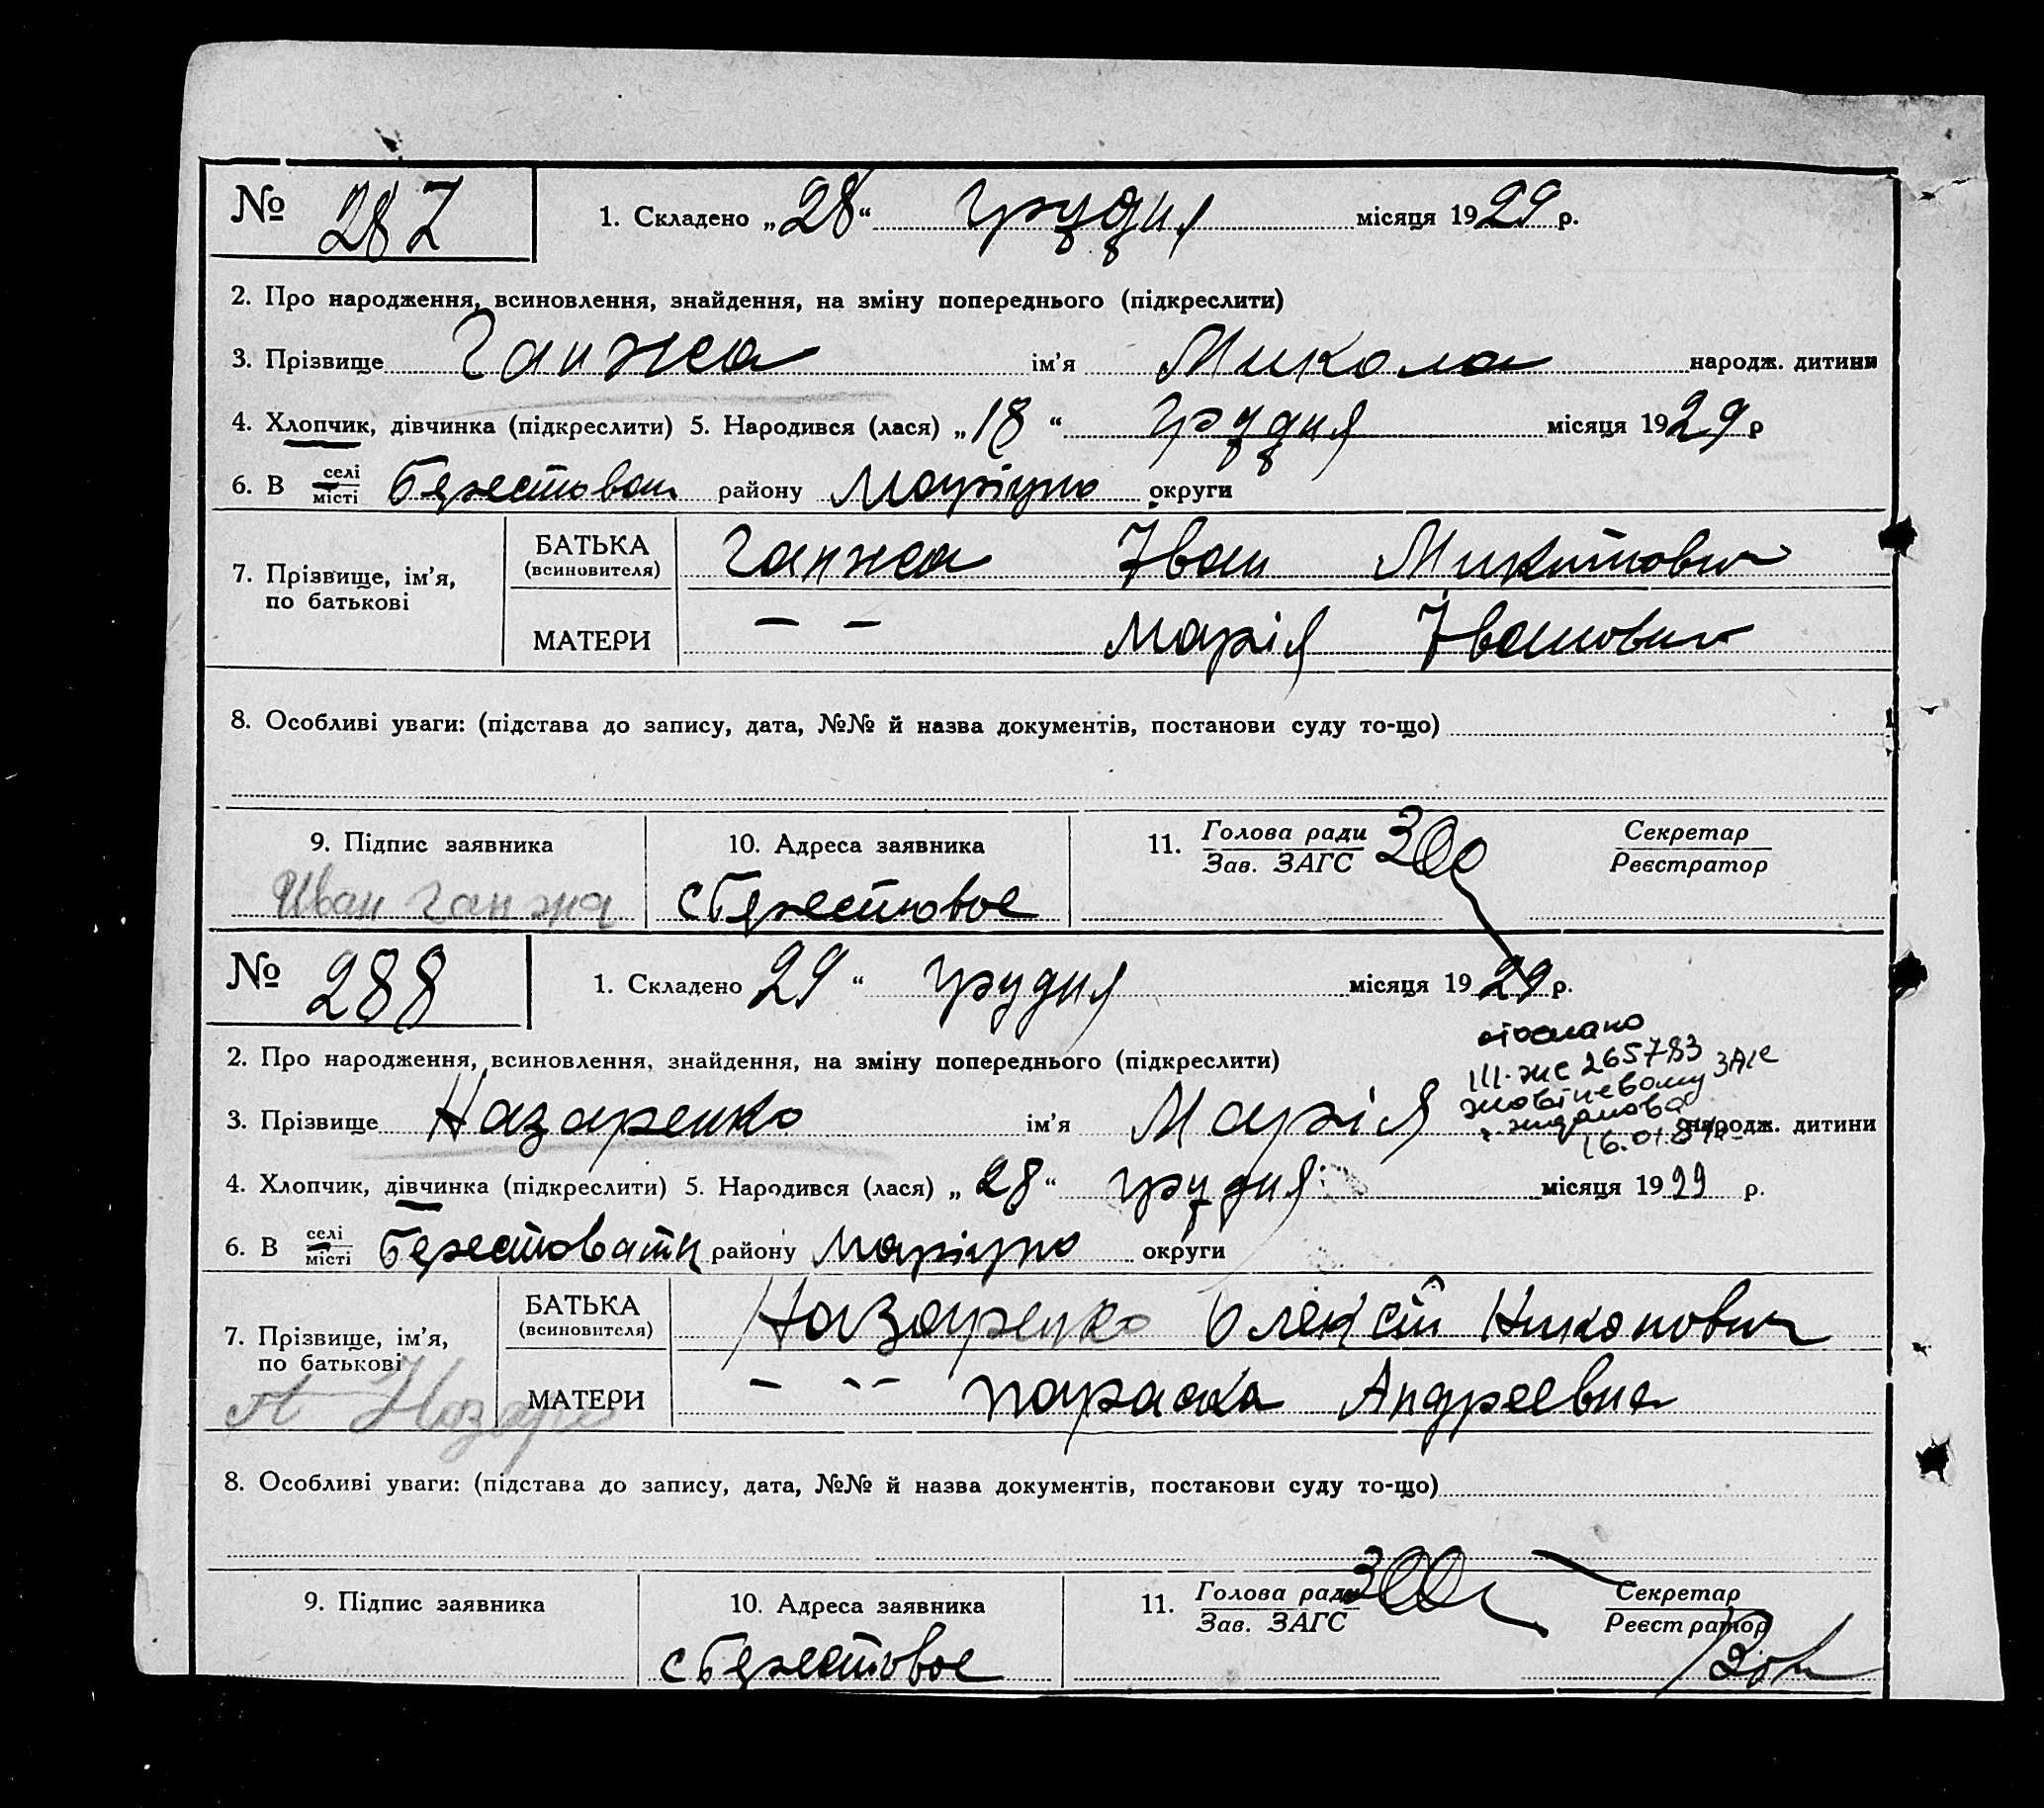 № 287
1. Складено „28“ грудня місяця 1929 р.
2. Про народження, всиновлення, знайдення, на зміну попереднього (підкреслити)
3. Прізвище Ганжа ім’я Микола народж. дитини
4. Хлопчик, дівчинка (підкреслити) 5. Народився (лася) „18“ грудня місяця 1929 р
6. В селі місті району Маріупо округи
7. Прізвище, ім’я, по батькові
БАТЬКА (всиновителя) Ганжа Іван Микитович
МАТЕРИ — — Марія Іванович
8. Особливі уваги: (підстава до запису, дата, №№ й назва документів, постанови суду то-що)
9. Підпис заявника 10. Адреса заявника 11. Голова ради Секретар
Зав. ЗАГС Реєстратор
Иван Ганжа с Берестовое
№ 288
1. Складено 29“ грудня місяця 1929 р.
отослано
III-же 265783
ЗАГС
2. Про народження, всиновлення, знайдення, на зміну попереднього (підкреслити)
3. Прізвище Назаренко ім’я Марія народж. дитини
16.01.
4. Хлопчик, дівчинка (підкреслити) 5. Народився (лася) „28“ грудня місяця 1929 р.
6. В селі місті району Маріупо округи
7. Прізвище, ім’я, по батькові
БАТЬКА (всиновителя) Назаренко Олексій Никонович
МАТЕРИ — -- Параска Андреевна
А Назаре
8. Особливі уваги: (підстава до запису, дата, №№ й назва документів, постанови суду то-що)
9. Підпис заявника 10. Адреса заявника 11. Голова ради Секретар
Зав. ЗАГС Реєстратор
с Берестовое